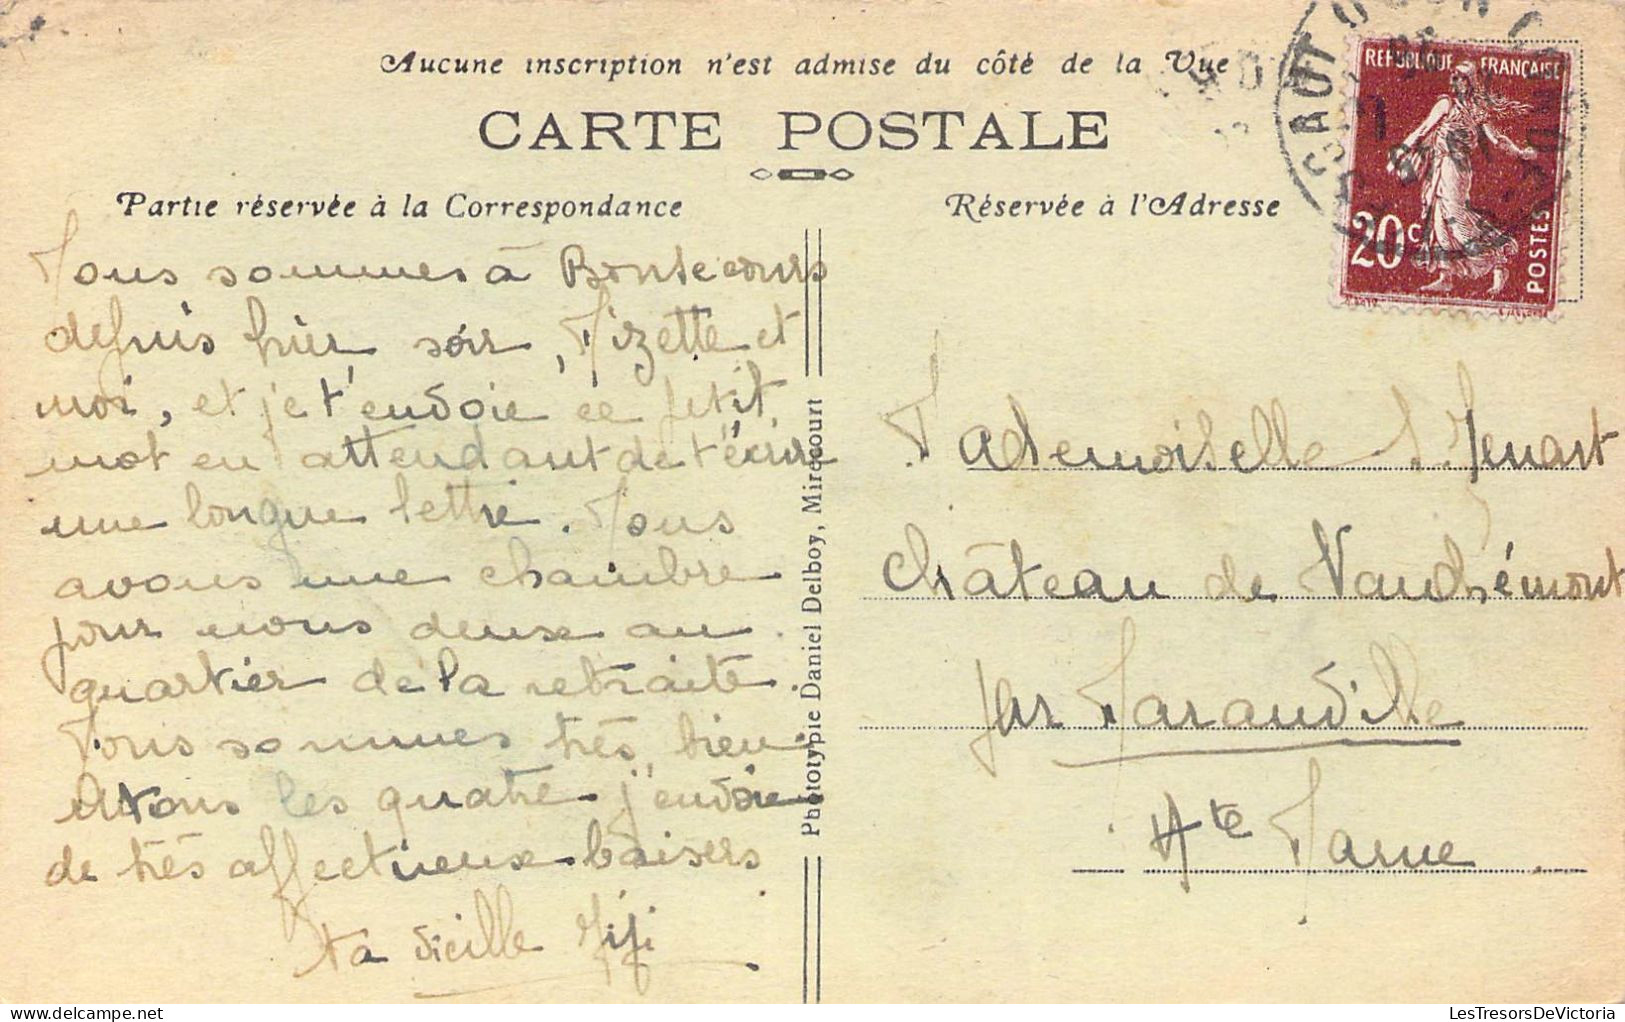 Aucune inscription n'est admise du côté de la Vue
CARTE POSTALE
Partie réservée à la Correspondance
Réservée à l'Adresse
REPUBLIQUE FRANÇAISE
20c
POSTES
Nous sommes à Bonsecours
depuis hier soir, Mizette et
moi, et je t'envoie ce petit
mot en attendant de t'écrire
une longue lettre. Nous
avons une chambre
pour nous deux au
quartier de la retraite.
Nous sommes très bien.
A tous les quatre j'envoie
de très affectueux baisers
ta vieille Fifi
Photorypie Daniel Delboy, Mirecourt
Mademoiselle
Château de Vaudrémont
par Maranville
Hte Marne
LesTresorsDeVictoria